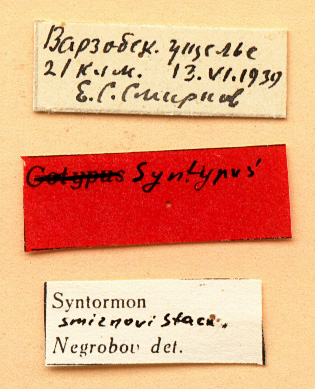 Варзобск. ущелье
21 клм. 13.VI.1939
Е.С.Смирнов
Cotypus Syntypus
Syntormon
smirnovi Stack.
Negrobov det.